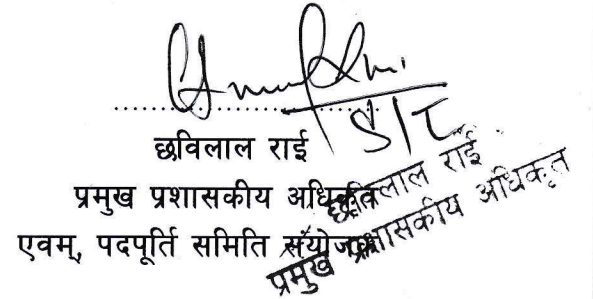 छविलाल राई
प्रमुख प्रशासकीय अधिकृत
एवम्, पदपूर्ति समिति संयोजक
छविलाल राई
प्रमुख प्रशासकीय अधिकृत